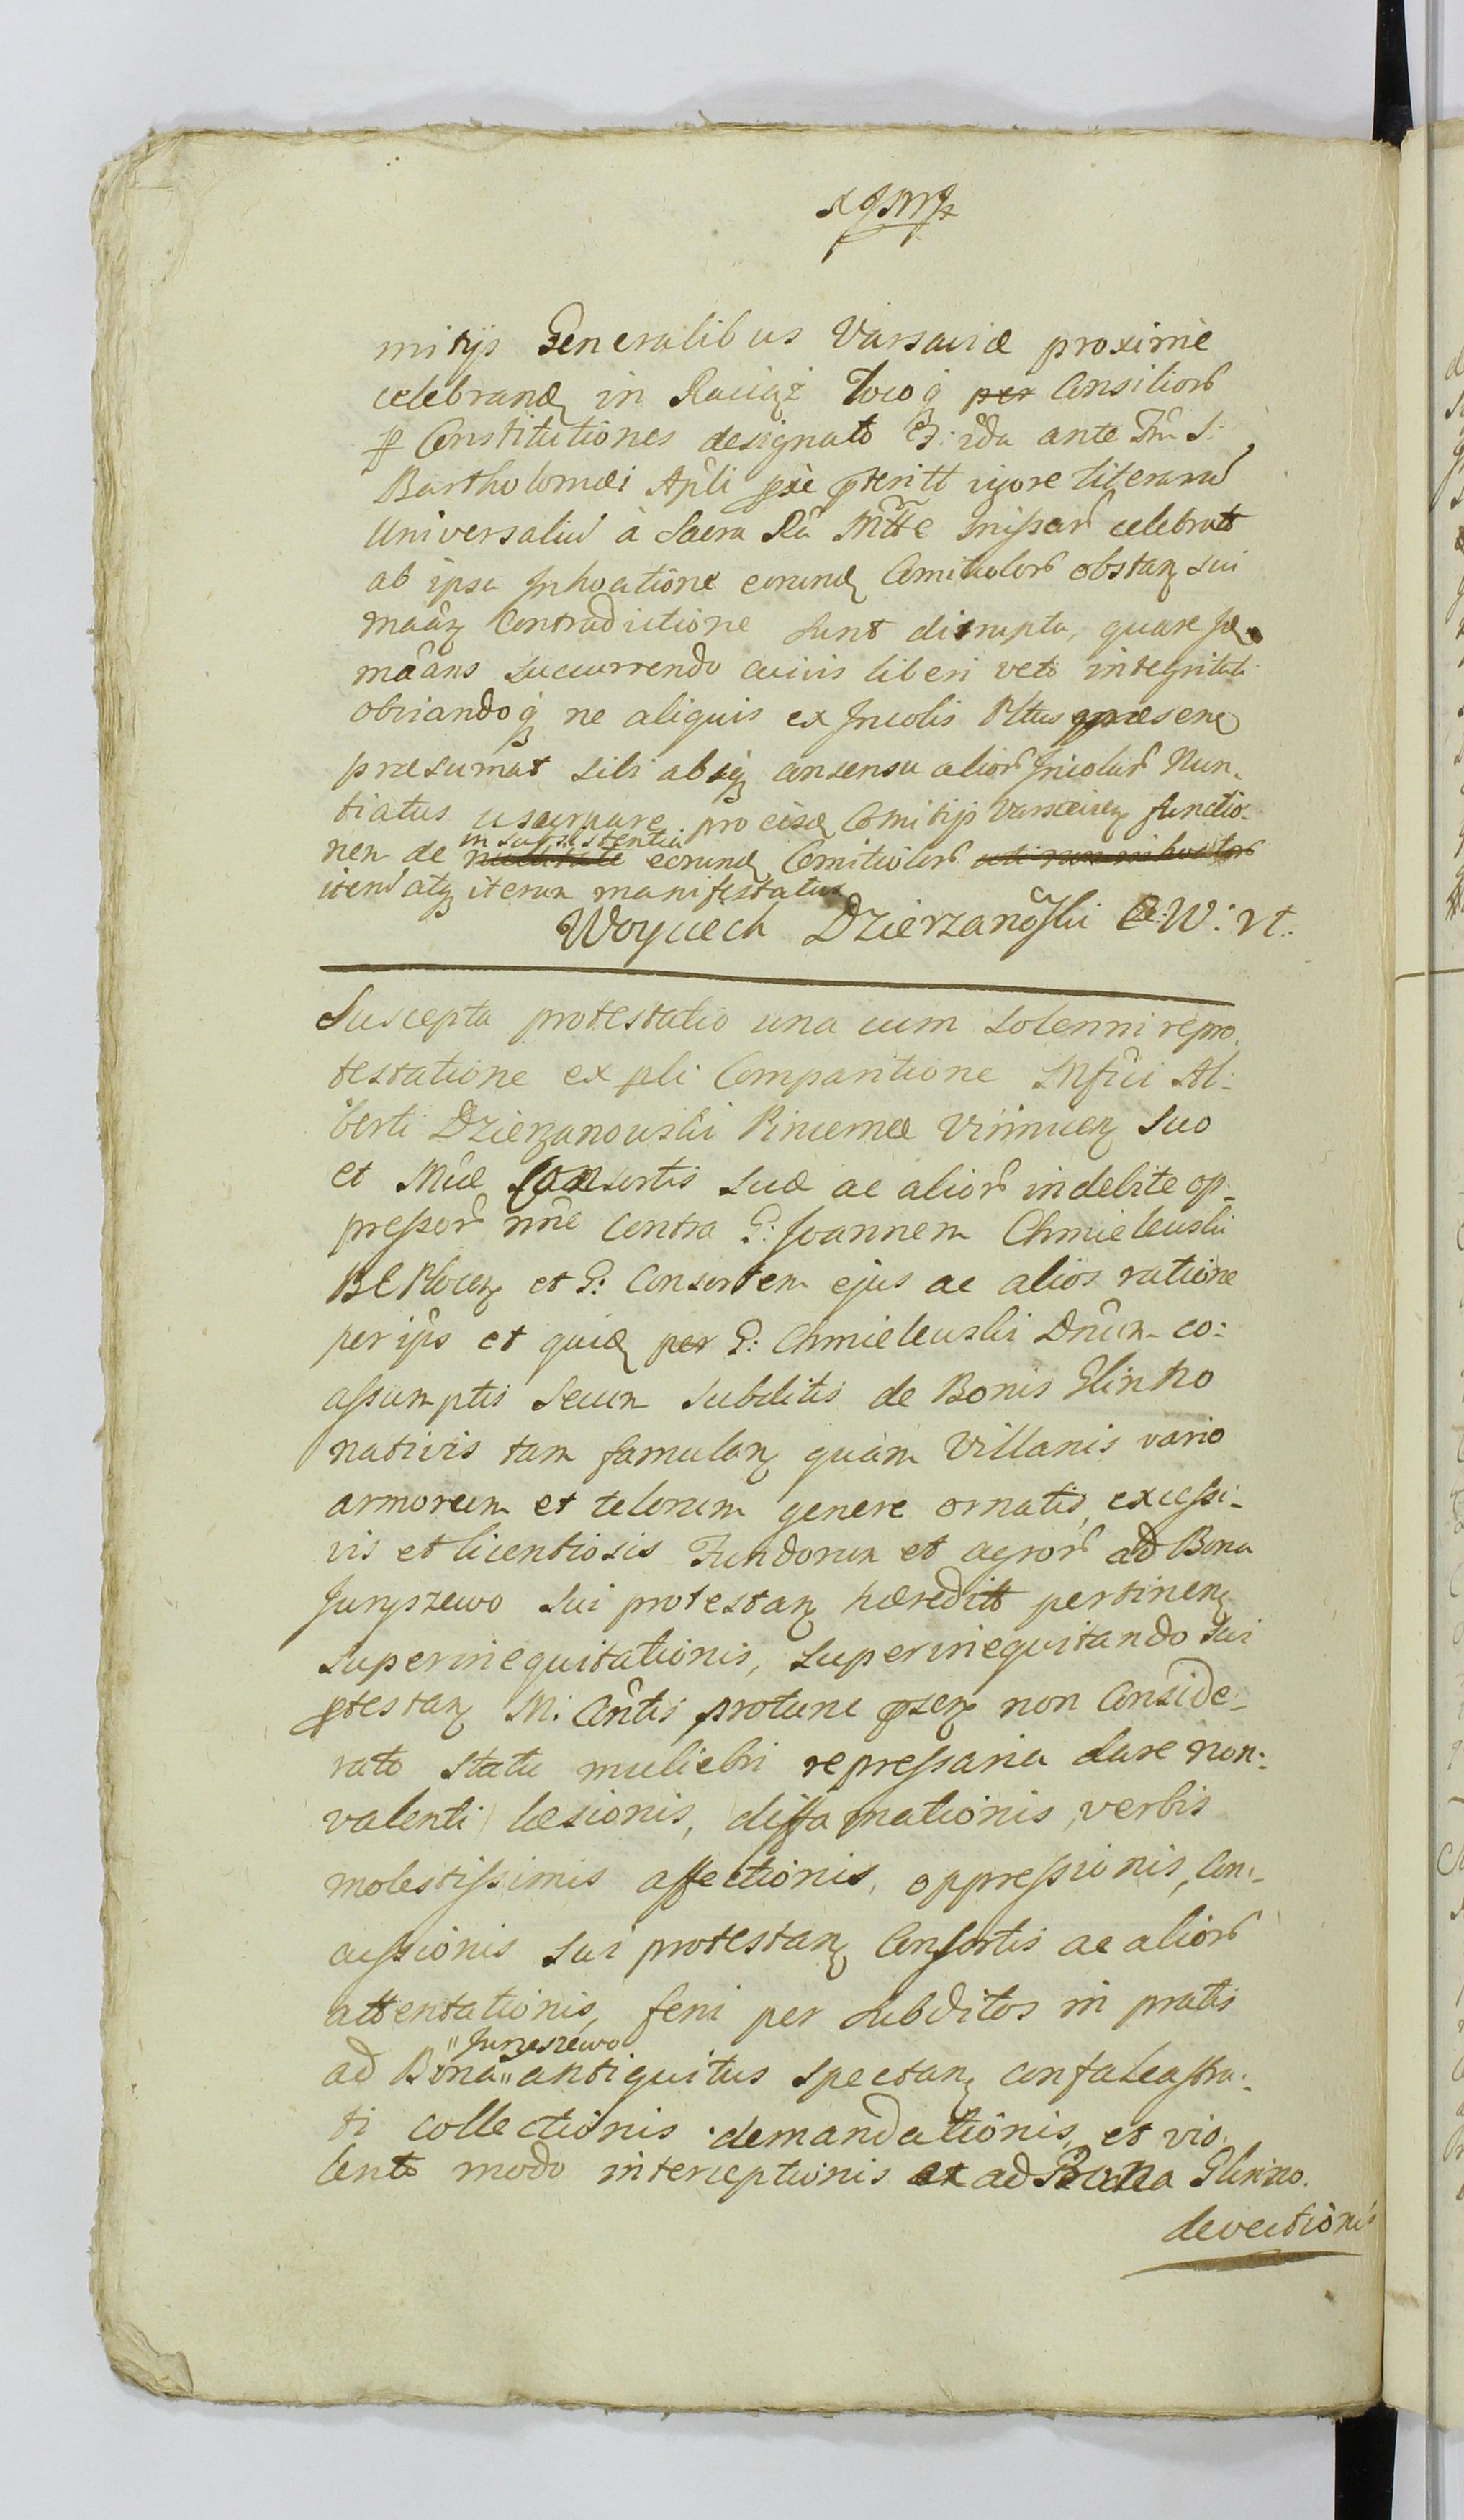 mitijs Generalibus Varsaviæ proximè
celebrand in Raciąż locoq per Consilior
Constitutiones designato ante S:
Bartholomæi Apli vigore literaru
Universaliu à Sacra Ra Mtte celebratt
ab ipsa Inhoatione eorund Comitiolor obstan sui
maan Contradictione sunt disrupta, quare se
maans succurrendo cuivis liberi veto integritati
obviandoq ne aliquis ex Incolis Plttus præsens
præsumat sibi absq consensu alior Incolar Nun-
tiatus usurpare pro eisd Comitijs Varsavien functio-
nem de in subsistentia nullitate eorund Comitiolor
item atq iterum manifestatur
Woyciech Dzierzanowski
Suscepta protestatio una cum solenni repro-
testatione ex pli Comparitione Mfici Al-
berti Dzierzanowski Pincernæ Vinnicen suo
et Mcæ Consortis suæ ac alior indebite op-
pressor nne contra G: Joannem Chmielewski
Plocen et G: Consortem ejus ac alios ratione
per ips et quid per G: Chmielewski Dnum co-
assumptis secum subditis de Bonis Glinno
nativis tam famulan quàm Villanis vario
armorum et telorum genere ornatis, excessi-
vis et licentiosis Fundorum et agror ad Bona
Juryszewo sui protestan hæreditt pertinen
superinequitationis, superinequitando sui
ptestan M: Cntis protunc psen non Conside-
rato statu muliebri repressaria dare non-
valenti læsionis, diffamationis, verbis
molestissimis affectionis, oppressionis, Con-
cussionis sui protestan Consortis ac alior
attentationis, feni per subditos in pratis
ad Bona "Juryszewo" antiquitus spectan confalcastra-
ti collectionis demandationis, et vio-
lento modo interceptionis et ad Bona Glinno
devectionis